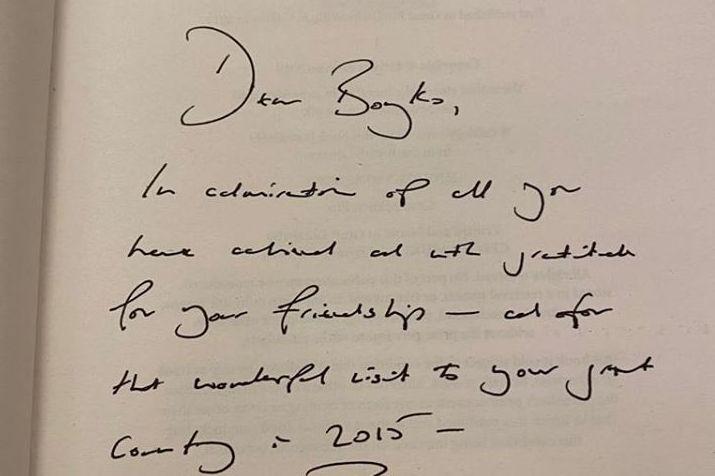 Dear Boyko,
In admiration of all you
have achieved and with gratitude
for your friendship — and for
that wonderful visit to your great
Country in 2015 —